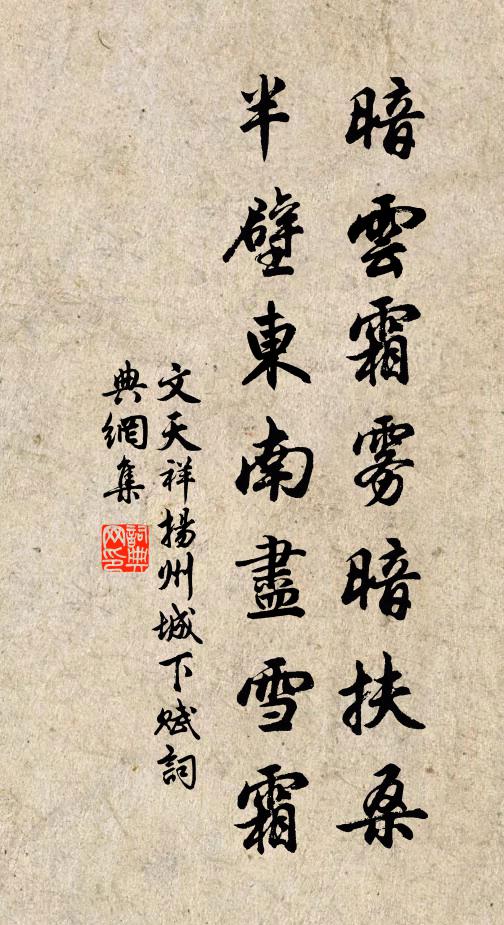 暗雲霜雾暗扶桑
半壁東南盡雪霜
文天祥揚州城下賦詞
典網集
詞典
网印